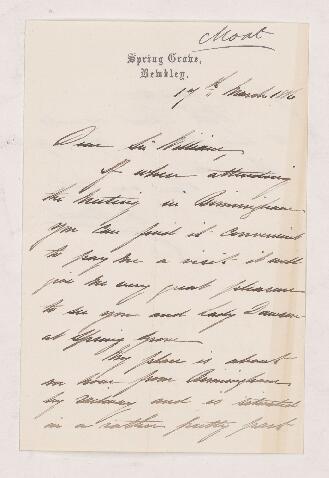 Moat
Spring Grove,
Bewdley.
17th March 1886
Dear Sir William,
If when attending
the Meeting in Birmingham
you can find it convenient
to pay me a visit it will
give me very great pleasure
to see you and Lady Dawson
at Spring Grove.
My place is about
an hour from Birmingham
by railway and is situated
in a rather pretty part